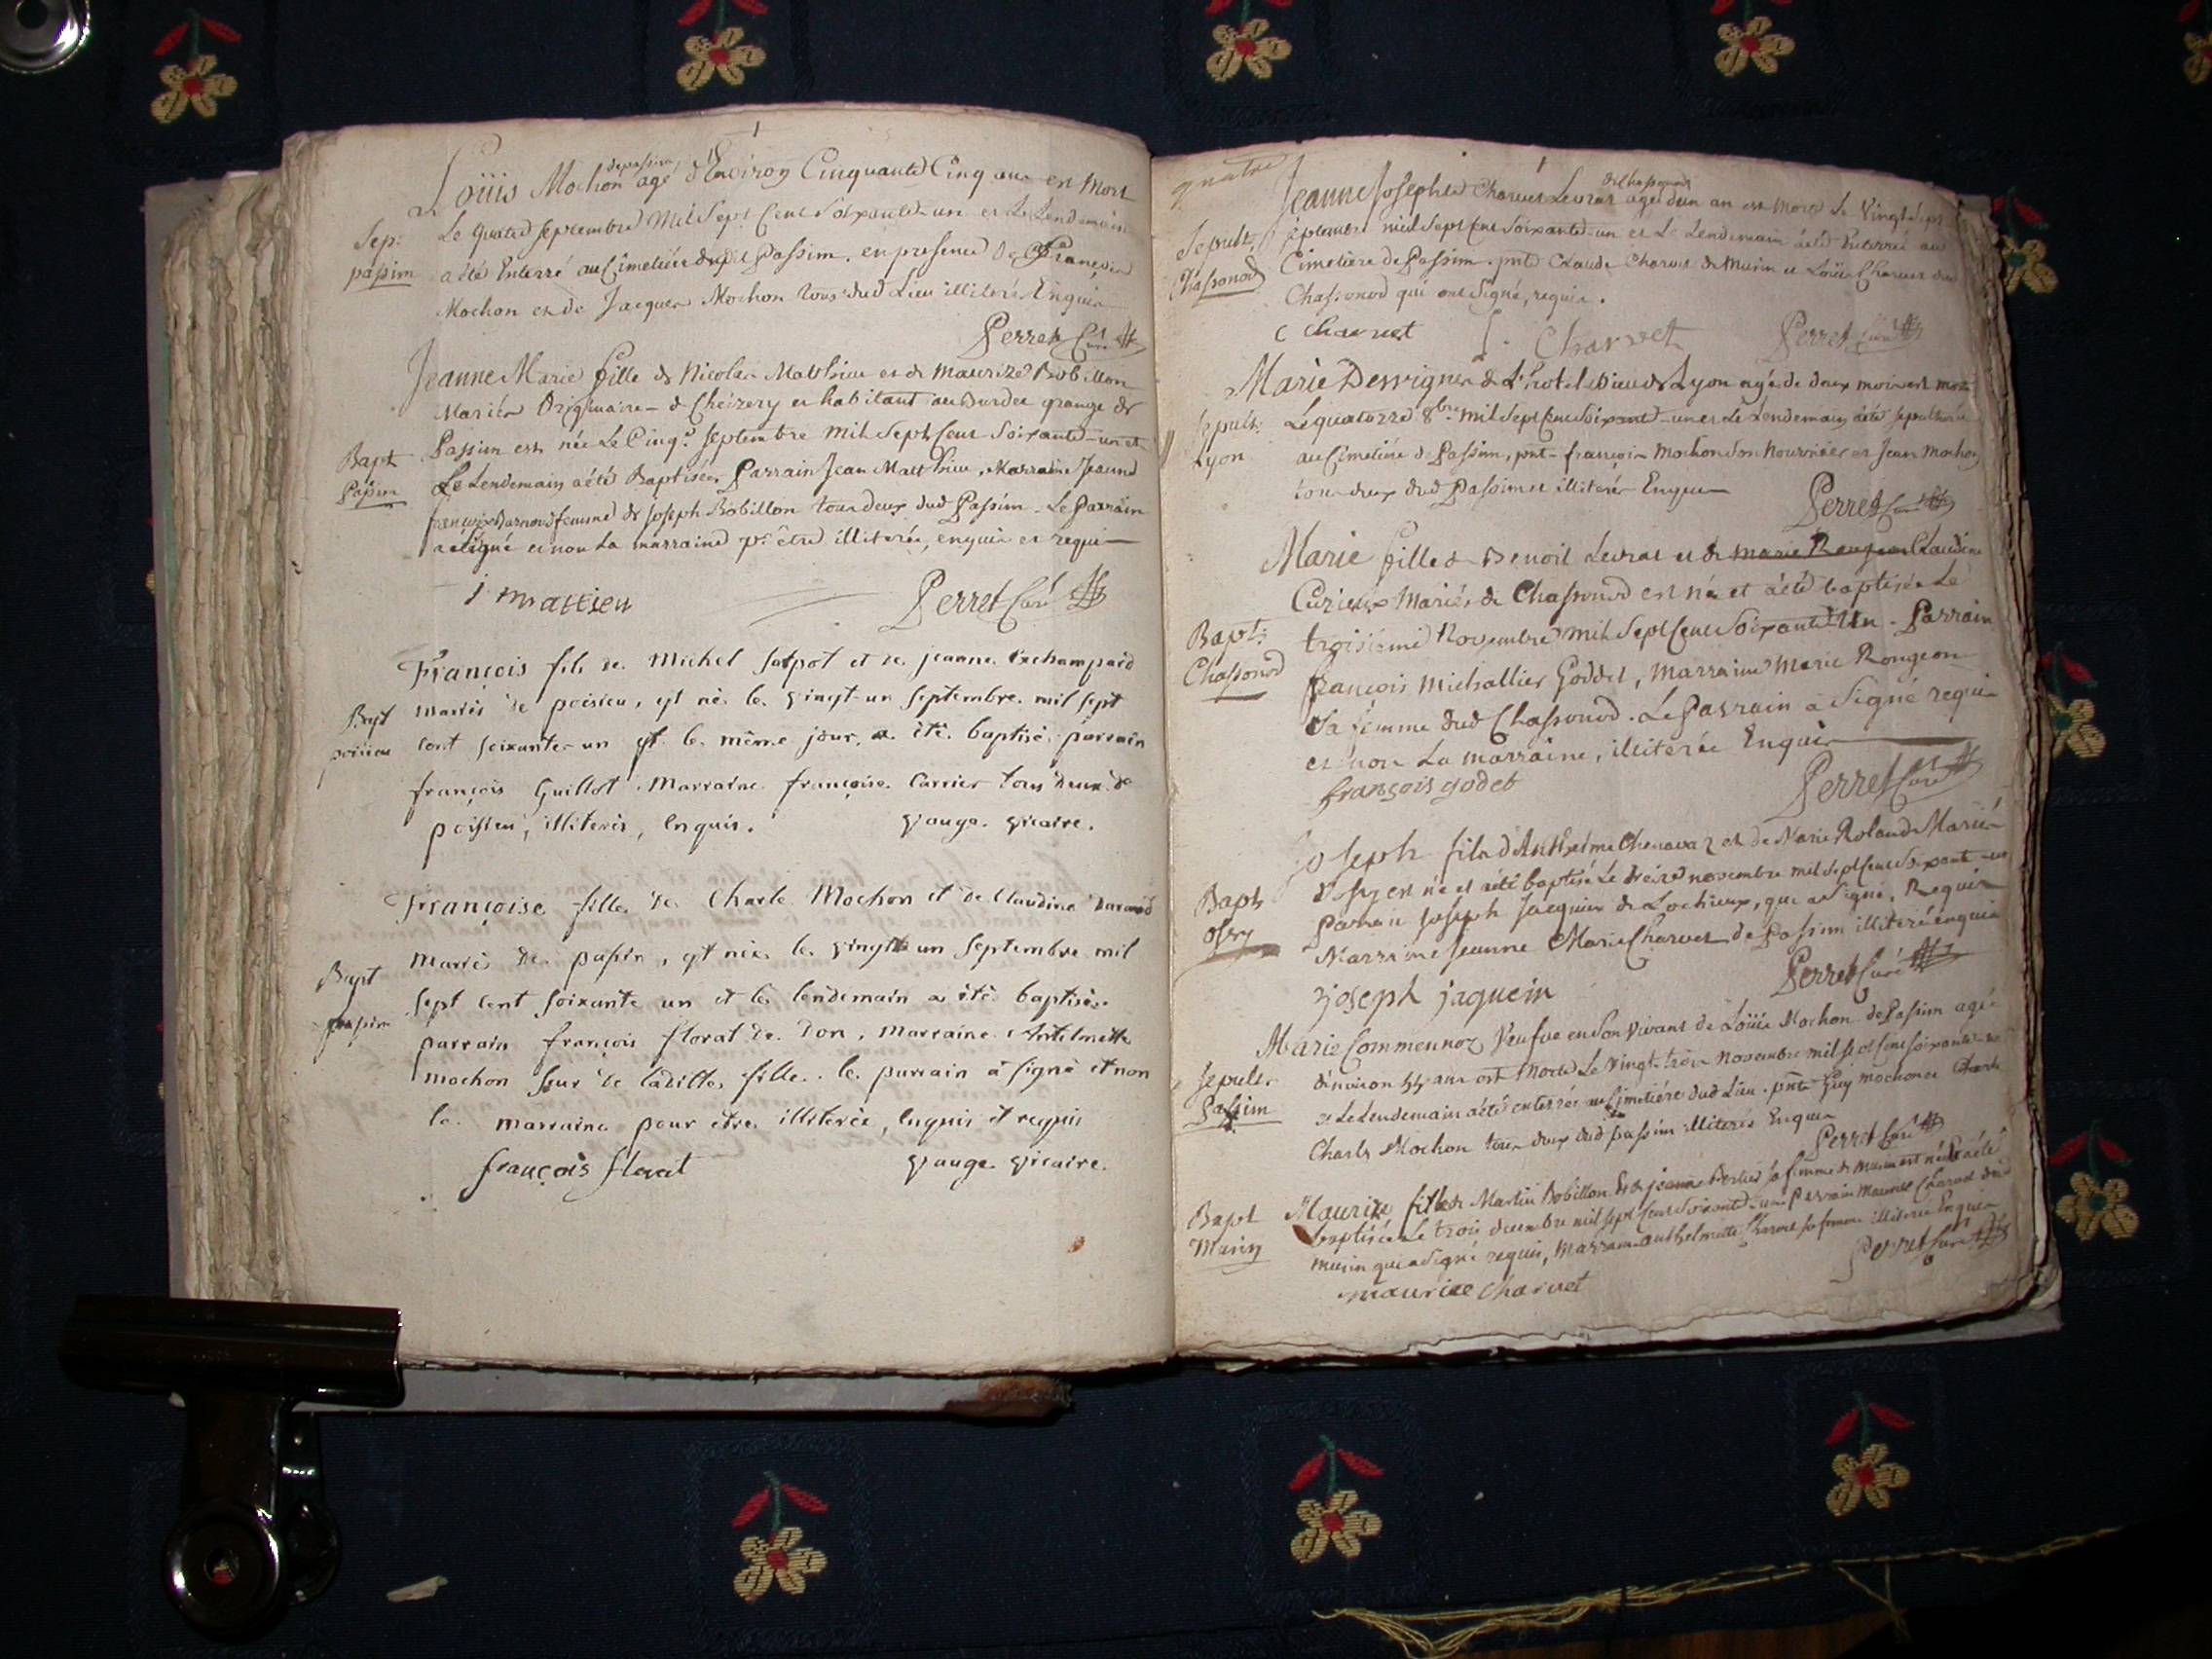 Loüis Mochon depassim agé d'Environ Cinquante Cinq ans est Mort
Sep: Le quatre septembre Mil Sept Cent Soixante-un et Le Lendemain
passim a été Enterré au Cimetiére dudit Passim. en presence de François
Mochon et de Jacques Mochon tous dud Lieu illiterés Enquis
Perret Curé
Jeanne Marie fille de Nicolas Matthieu et de maurize Bobillon
Mariés Originaires de Cheizery et habitant au grange de
Bapt Passim est née Le Cinq septembre Mil Sept Cent Soixante-un et
Passim Le Lendemain a été Baptisée Parrain Jean Matthieu, Marraine Jeanne
françoise femme de Joseph Bobillon tous deux dud Passim. Le Parrain
a signé et non La marraine pr être illiterée, enquis et requis
j mattieu
Perret Curé
François fils de Michel et de jeanne
mariés de poisieu, est né le vingt-un septembre mil sept
Bapt
poisieu cent soixante-un et le même jour, a été baptisé parrain
françois Guillot. Marraine françoise Carrier tous deux de
poisieu, illiterés, enquis. vicaire.
Françoise fille de Charle Mochon et de Claudine
mariés de passin, est née le vingt un septembre mil
Bapt
passim sept cent soixante un et le lendemain a été baptisée
parrain françois florat de Don, marraine Antelmette
mochon seur de ladille fille. le parrain à signé et non
la marraine pour etre illiterée, enquis et requis
françois florat vicaire.
quatre
Jeanne Josephte Charvet Levrat de Chassonod agée d'un an est Morte Le Vingt Sept
Sepult. septembre mil Sept Cent Soixante-un et Le Lendemain a été Enterrée au
Chassonod Cimetiére de Passim. pnts Claude Charvet de Musin et Loüis Charvet dud
Chassonod qui ont signé, requis.
C Charvet L. Charvet Perret Curé
Marie de L'hotel dieu de Lyon agée de deux mois est morte
Sepult: Le quatorze 8bre mil Sept Cent Soixante-un et Le Lendemain a été sepulturée
Lyon au Cimetiére de Passim, pnts françois Mochon son Nourricier et Jean Mochon
tous deux dud Passim illiterés Enquis
Perret Curé
Marie fille de Benoit Levrat et de marie Rongeon Claudine
Mariés de Chassonod est née et a été baptisée Le
Bapt: troisieme Novembre mil Sept Cent Soixante Un. Parrain
Chassonod françois Michallier Goddet, Marraine Marie Rongeon
Sa femme dud Chassonod. Le Parrain a Signé requis
et non La marraine, illiterée Enquis
françois godet
Perret Curé
Joseph fils d'Anthelme Chenavaz et de Marie Roland Mariés
Bapt d'Ossy est né et a été baptisé Le treize novembre mil Sept Cent Soixante-un
ossy Parrain Joseph Jacquin de Lochieux, qui a Signé, Requis
Marraine Jeanne Marie Charvet de Passim illiterée enquis
joseph jaquein
Perret Curé
Marie Veufve en Son Vivant de Loüis Mochon de Passim agée
Sepult. d'environ 55 ans est Morte Le Vingt-trois Novembre mil Sept Cent Soixante-un
Passim et Le Lendemain a été enterrée au Cimetiére dud Lieu. pnts Guy mochon et
Charles Mochon tous deux dud passim illiterés Enquis
Perret Curé
Maurize fille de Martin Bobillon Et de jeanne sa femme de Musin est née Et a été
Bapt baptisée Le trois decembre mil sept Cent Soixante-un Parrain Maurice Charvet dud
Musin musin qui a Signé requis, Marraine Anthelmette sa femme illiterée Enquis
maurice charvet
Perret Curé